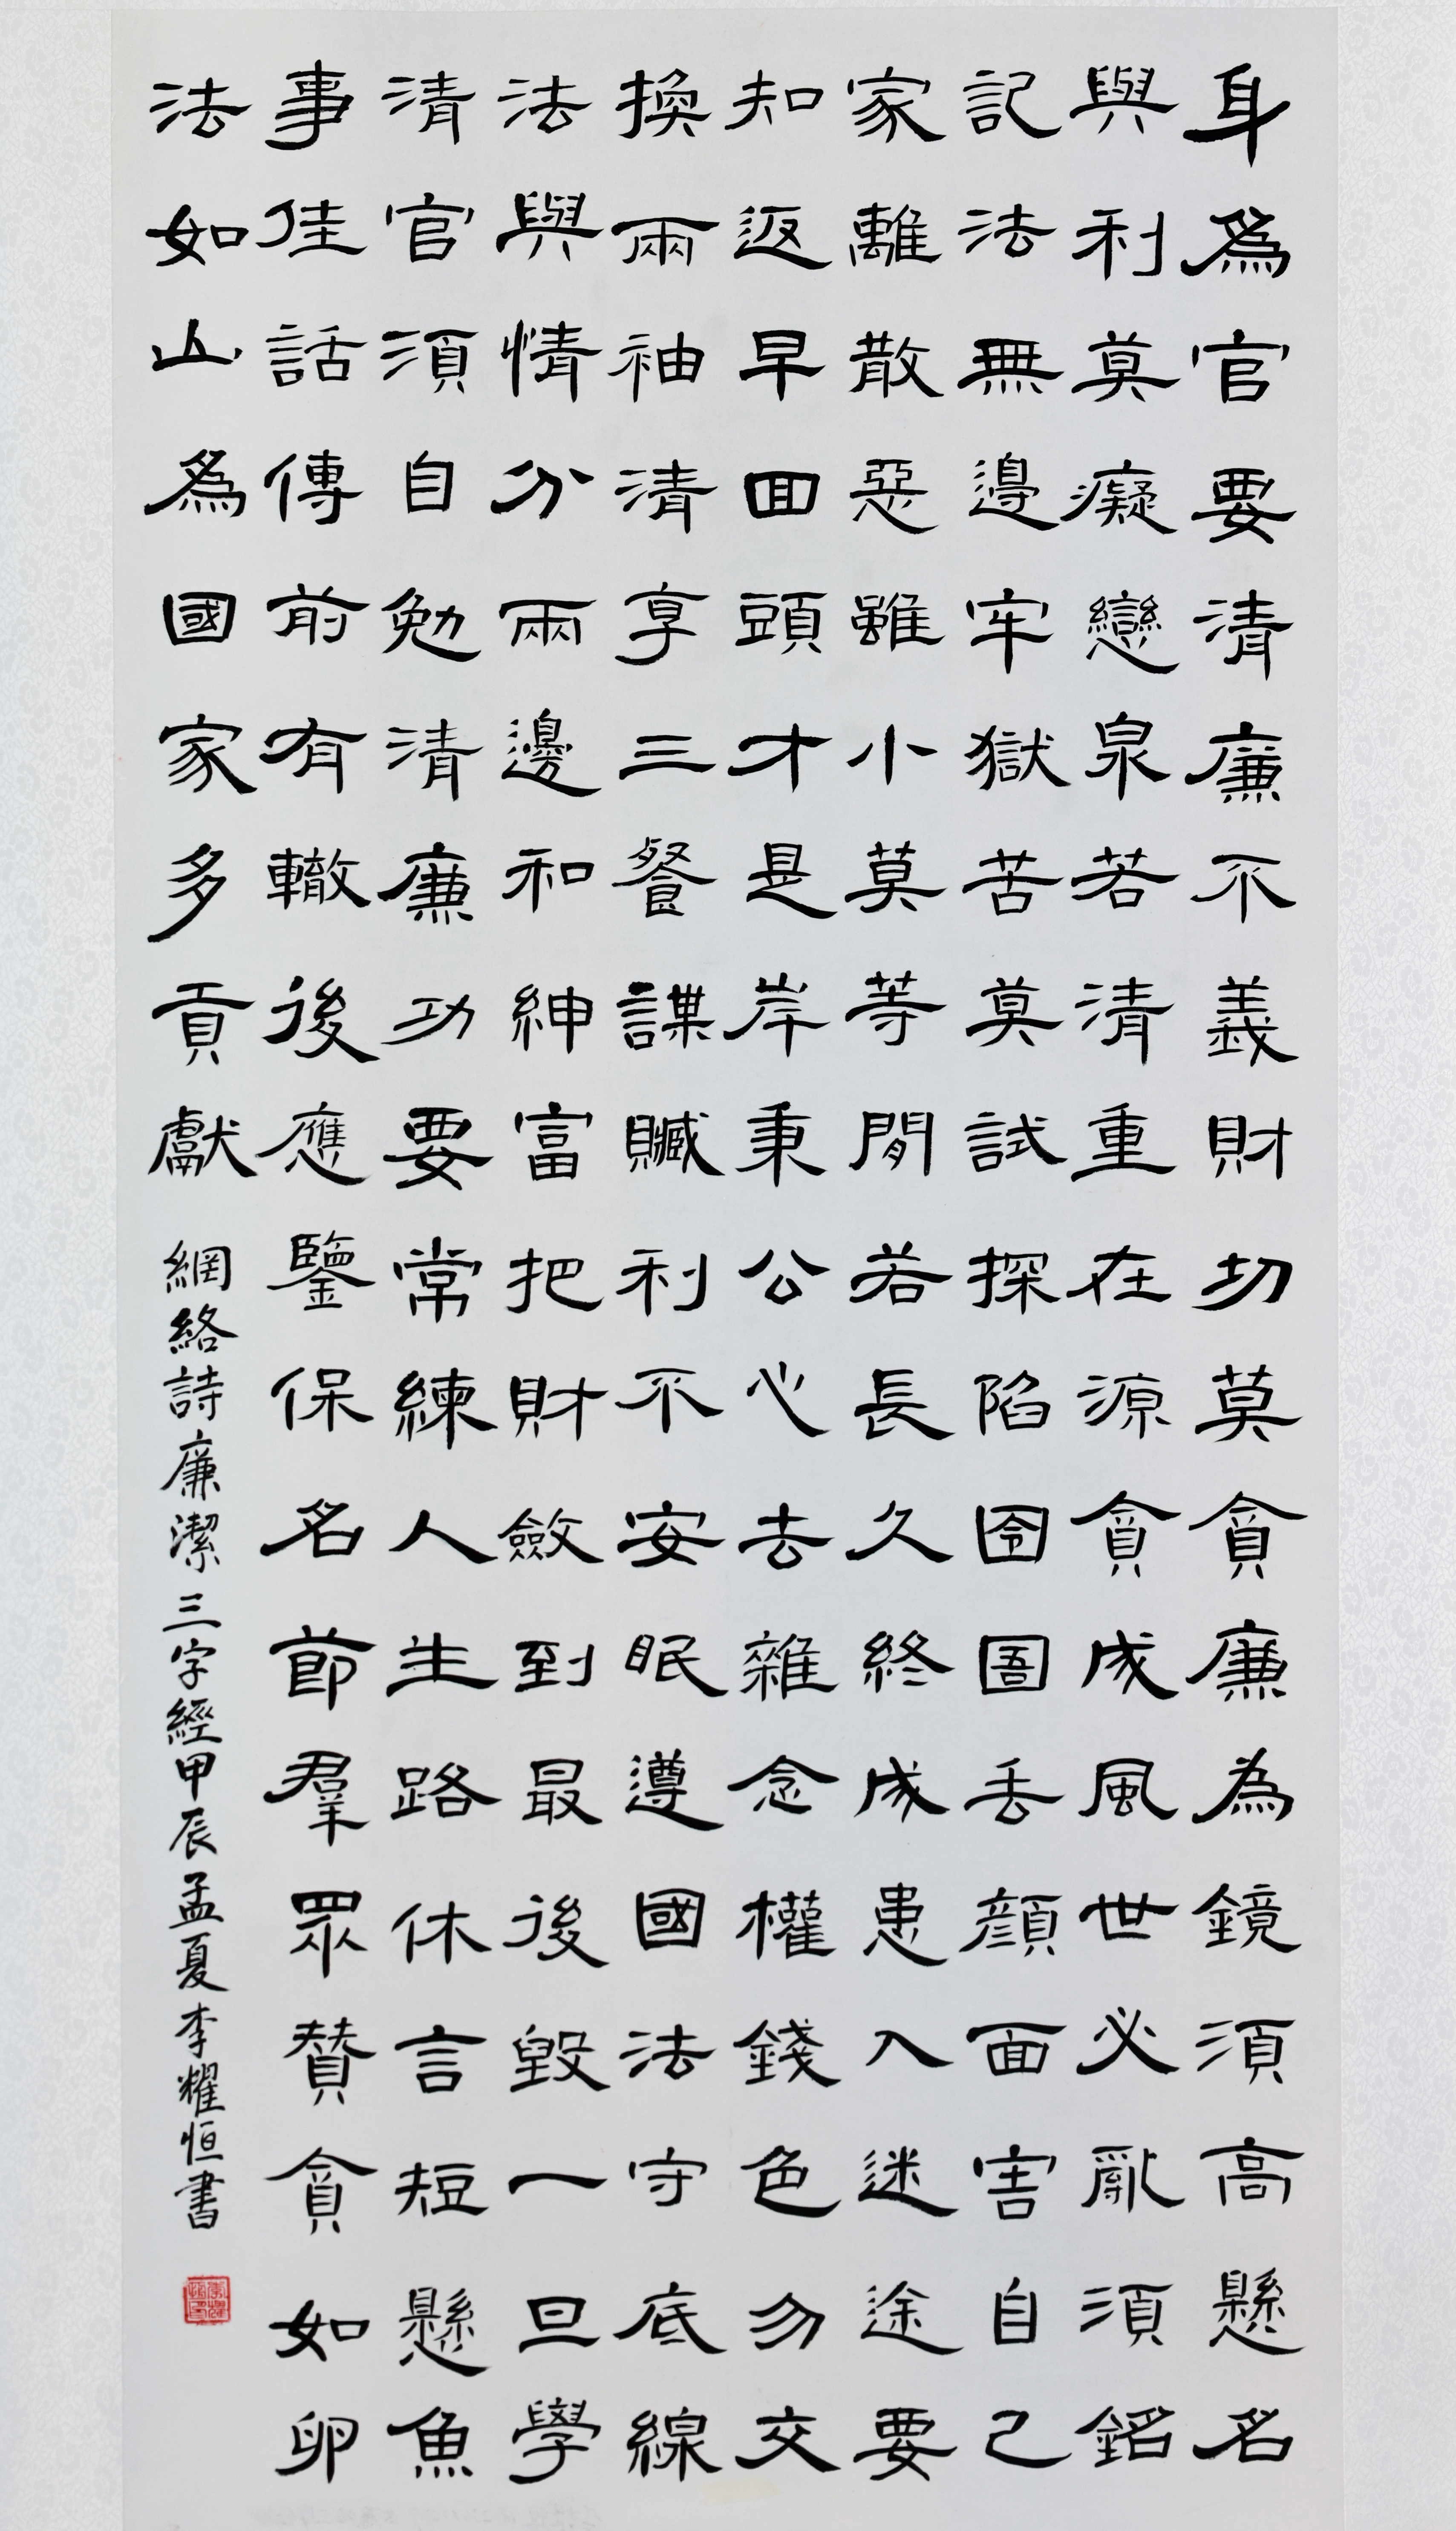 身爲官要清廉不義財切莫貪廉為鏡須高懸名
與利莫癡戀泉若清重在源貪成風世必亂須銘
記法無邊牢獄苦莫試探陷囹圄丟顔面害自己
家離散惡雖小莫等閒若長久終成患入迷途要
知返早回頭才是岸秉公心去雜念權錢色勿交
換兩袖清享三餐諜贓利不安眠遵國法守底線
法與情分兩邊和紳富把財斂到最後毀一旦學
清官須自勉清廉功要常練人生路休言短懸魚
事佳話傳前有轍後應鑒保名節羣眾贊貪如卵
法如山爲國家多貢獻
網絡詩廉潔三字經甲辰孟夏李耀恒書